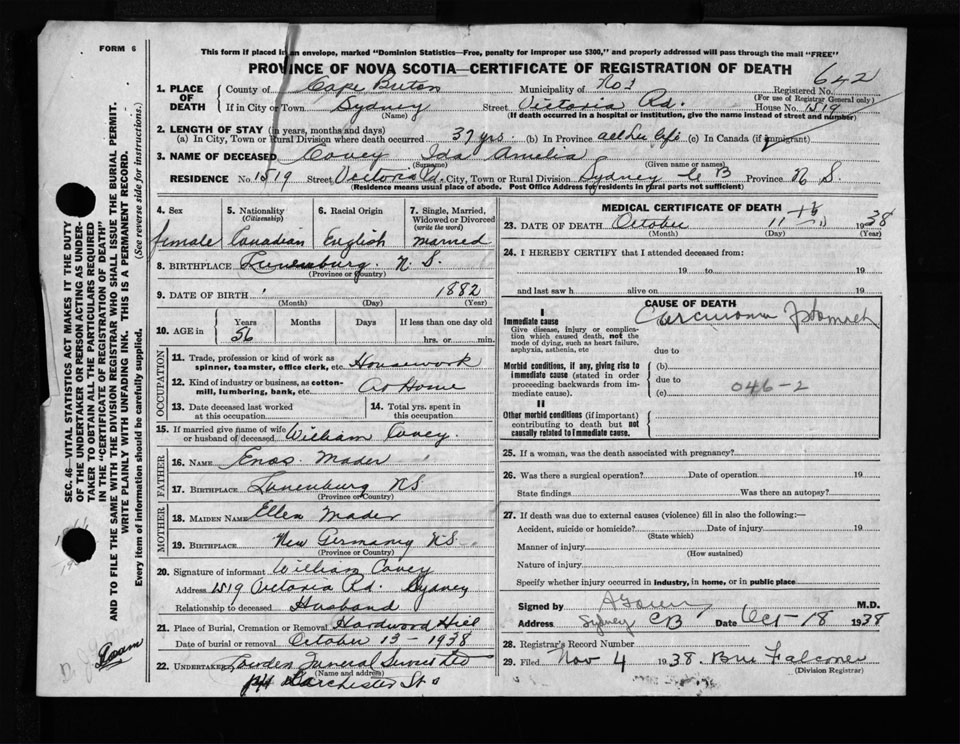 FORM 6
This form if placed in an envelope, marked "Dominion Statistics—Free, penalty for improper use $300," and properly addressed will pass through the mail "FREE"
PROVINCE OF NOVA SCOTIA—CERTIFICATE OF REGISTRATION OF DEATH
642
1. PLACE OF DEATH
County of Cape Breton Municipality of No 1 Registered No.
(For use of Registrar General only)
If in City or Town Sydney Street Victoria Rd. House No. 1519
(Name) (If death occurred in a hospital or institution, give the name instead of street and number)
2. LENGTH OF STAY (in years, months and days)
(a) In City, Town or Rural Division where death occurred 37 yrs. (b) In Province all her life (c) In Canada (if immigrant)
3. NAME OF DECEASED Covey Ida Amelia
(Surname) (Given name or names)
RESIDENCE No. 1519 Street Victoria Rd. City, Town or Rural Division Sydney C B Province N S.
(Residence means usual place of abode. Post Office Address for residents in rural parts not sufficient)
SEC. 46—VITAL STATISTICS ACT MAKES IT THE DUTY
OF THE UNDERTAKER OR PERSON ACTING AS UNDER-
TAKER TO OBTAIN ALL THE PARTICULARS REQUIRED
IN THE "CERTIFICATE OF REGISTRATION OF DEATH"
AND TO FILE THE SAME WITH THE DIVISION REGISTRAR WHO SHALL ISSUE THE BURIAL PERMIT.
WRITE PLAINLY WITH UNFADING INK. THIS IS A PERMANENT RECORD.
Every item of information should be carefully supplied. (See reverse side for instructions.)
4. Sex
female
5. Nationality
(Citizenship)
Canadian
6. Racial Origin
English
7. Single, Married, Widowed or Divorced
(write the word)
married
8. BIRTHPLACE Lunenburg. N. S.
(Province or Country)
9. DATE OF BIRTH 1882
(Month) (Day) (Year)
10. AGE in
Years Months Days If less than one day old
56 hrs. or min.
OCCUPATION
11. Trade, profession or kind of work as
spinner, teamster, office clerk, etc. Housework
12. Kind of industry or business, as cotton-
mill, lumbering, bank, etc. At Home
13. Date deceased last worked
at this occupation
14. Total yrs. spent in
this occupation
15. If married give name of wife
or husband of deceased William Covey.
FATHER
16. NAME Enos. Mader
17. BIRTHPLACE Lunenburg NS
(Province or Country)
MOTHER
18. MAIDEN NAME Ellen Mader
19. BIRTHPLACE New Germany NS
(Province or Country)
20. Signature of informant William Covey
Address 1519 Victoria Rd. Sydney
Relationship to deceased Husband
21. Place of Burial, Cremation or Removal Hardwood Hill
Date of burial or removal October 13 - 1938
22. Undertaker Funeral Service Ltd
(Name and address)
Dorchester St
MEDICAL CERTIFICATE OF DEATH
23. DATE OF DEATH October 11 1938
(Month) (Day) (Year)
24. I HEREBY CERTIFY that I attended deceased from:
19 to 19
and last saw h alive on 19
CAUSE OF DEATH
I
Immediate cause Carcinoma Stomach
Give disease, injury or complica-
tion which caused death, not the
mode of dying, such as heart failure,
asphyxia, asthenia, etc
due to
Morbid conditions, if any, giving rise to
immediate cause (stated in order
proceeding backwards from im-
mediate cause).
(b)
due to
(c) 046-2
II
Other morbid conditions (if important)
contributing to death but not
causally related to immediate cause.
25. If a woman, was the death associated with pregnancy?
26. Was there a surgical operation? Date of operation 19
State findings Was there an autopsy?
27. If death was due to external causes (violence) fill in also the following:—
Accident, suicide or homicide? Date of injury 19
(State which)
Manner of injury
(How sustained)
Nature of injury
Specify whether injury occurred in industry, in home, or in public place
Signed by M.D.
Address Sydney CB Date Oct - 18 1938
28. Registrar's Record Number
29. Filed Nov 4 1938. Falconer
(Division Registrar)